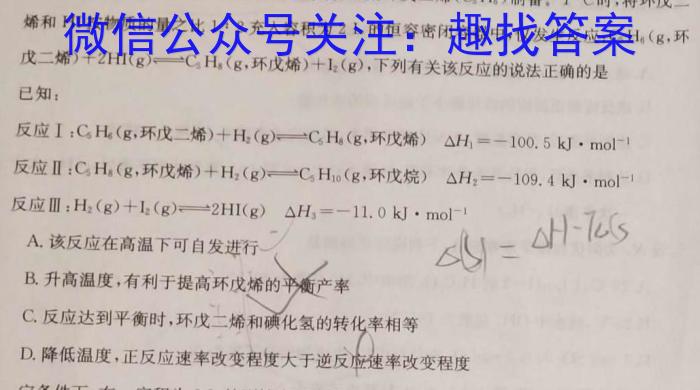 制备。T℃时,将环戊二
烯和
微信公众号关注：趣找答案
(g,环
戊二烯)+2HI(g)⇌C₅H₈(g,环戊烯)+I₂(g),下列有关该反应的说法正确的是
已知:
反应Ⅰ:C₅H₆(g,环戊二烯)+H₂(g)⇌C₅H₈(g,环戊烯) ΔH₁=-100.5 kJ·mol⁻¹
反应Ⅱ:C₅H₈(g,环戊烯)+H₂(g)⇌C₅H₁₀(g,环戊烷) ΔH₂=-109.4 kJ·mol⁻¹
反应Ⅲ:H₂(g)+I₂(g)⇌2HI(g) ΔH₃=-11.0 kJ·mol⁻¹
A. 该反应在高温下可自发进行
ΔH-TΔS
B. 升高温度,有利于提高环戊烯的平衡产率
C. 反应达到平衡时,环戊二烯和碘化氢的转化率相等
D. 降低温度,正反应速率改变程度大于逆反应速率改变程度